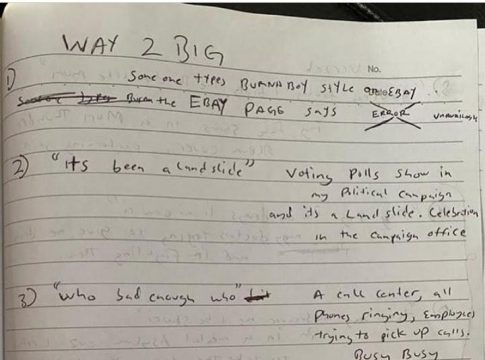 WAY 2 BIG
No.
1) Some one types BURNABOY style on EBAY
But the EBAY PAGE says ERROR unavailable
2) "its been a land slide" Voting Polls show in
my Political Campaign
and its a Land slide. Celebration
in the Campaign office
3) "who bad enough who" A call center, all
Phones ringing, Employees
trying to pick up calls.
Busy Busy